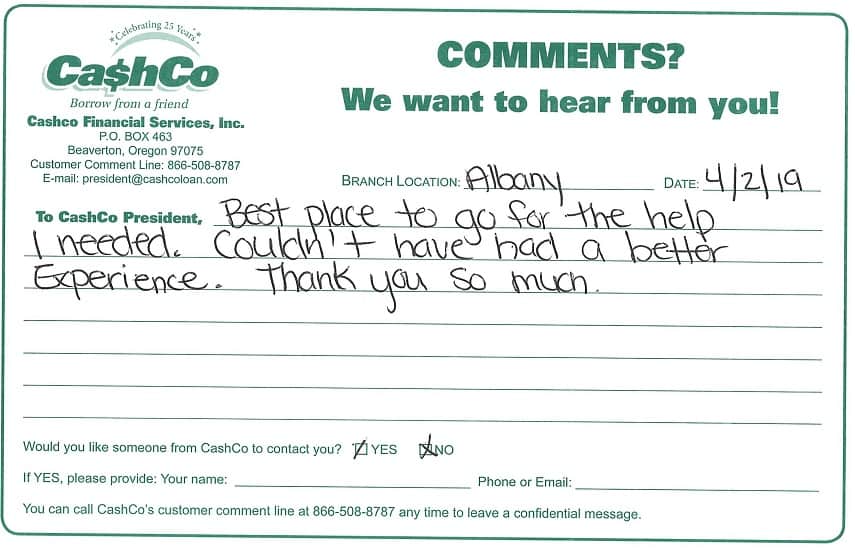 Celebrating 25 Years
Ca$hCo
Borrow from a friend
Cashco Financial Services, Inc.
P.O. BOX 463
Beaverton, Oregon 97075
Customer Comment Line: 866-508-8787
E-mail: president@cashcoloan.com
COMMENTS?
We want to hear from you!
BRANCH LOCATION: Albany DATE: 4/2/19
To CashCo President, Best place to go for the help
I needed. Couldn't have had a better
Experience. Thank you so much.
Would you like someone from CashCo to contact you? YES NO
If YES, please provide: Your name: Phone or Email:
You can call CashCo's customer comment line at 866-508-8787 any time to leave a confidential message.